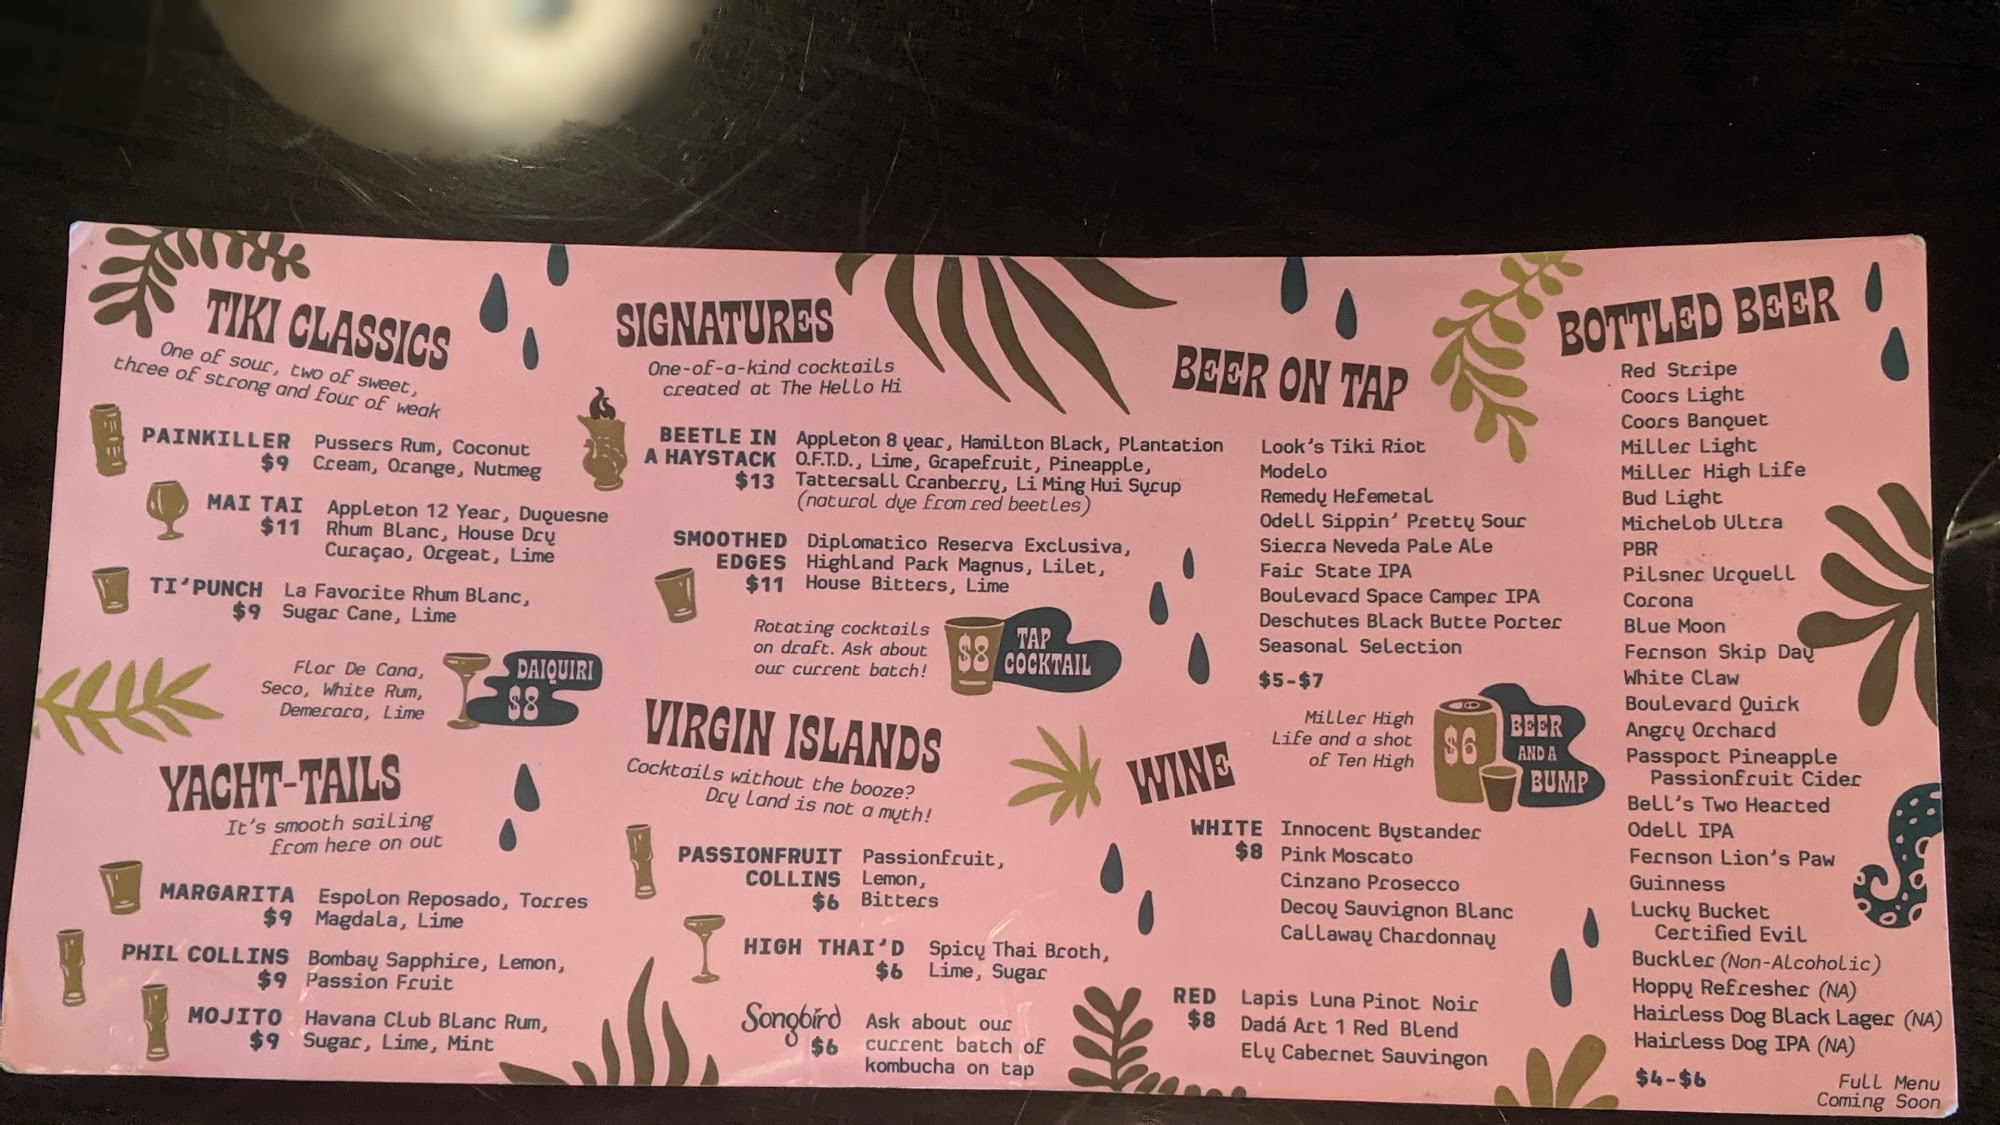 TIKI CLASSICS
One of sour, two of sweet,
three of strong and four of weak
PAINKILLER Pussers Rum, Coconut
$9 Cream, Orange, Nutmeg
MAI TAI Appleton 12 Year, Duquesne
$11 Rhum Blanc, House Dry
Curaçao, Orgeat, Lime
TI'PUNCH La Favorite Rhum Blanc,
$9 Sugar Cane, Lime
FLor De Cana,
Seco, White Rum,
Demerara, Lime
DAIQUIRI
$8
YACHT-TAILS
It's smooth sailing
from here on out
MARGARITA Espolon Reposado, Torres
$9 Magdala, Lime
PHIL COLLINS Bombay Sapphire, Lemon,
$9 Passion Fruit
MOJITO Havana Club Blanc Rum,
$9 Sugar, Lime, Mint
SIGNATURES
One-of-a-kind cocktails
created at The Hello Hi
BEETLE IN Appleton 8 year, Hamilton Black, Plantation
A HAYSTACK O.F.T.D., Lime, Grapefruit, Pineapple,
$13 Tattersall Cranberry, Li Ming Hui Syrup
(natural dye from red beetles)
SMOOTHED Diplomatico Reserva Exclusiva,
EDGES Highland Park Magnus, Lilet,
$11 House Bitters, Lime
Rotating cocktails
on draft. Ask about
our current batch!
$8 TAP
COCKTAIL
VIRGIN ISLANDS
Cocktails without the booze?
Dry land is not a myth!
PASSIONFRUIT Passionfruit,
COLLINS Lemon,
$6 Bitters
HIGH THAI'D Spicy Thai Broth,
$6 Lime, Sugar
Songbird Ask about our
$6 current batch of
kombucha on tap
BEER ON TAP
Look's Tiki Riot
Modelo
Remedy Hefemetal
Odell Sippin' Pretty Sour
Sierra Neveda Pale Ale
Fair State IPA
Boulevard Space Camper IPA
Deschutes Black Butte Porter
Seasonal Selection
$5-$7
Miller High
Life and a shot
of Ten High
$6
BEER
AND A
BUMP
WINE
WHITE Innocent Bystander
$8 Pink Moscato
Cinzano Prosecco
Decoy Sauvignon Blanc
Callaway Chardonnay
RED Lapis Luna Pinot Noir
$8 Dadá Art 1 Red Blend
Ely Cabernet Sauvingon
BOTTLED BEER
Red Stripe
Coors Light
Coors Banquet
Miller Light
Miller High Life
Bud Light
Michelob Ultra
PBR
Pilsner Urquell
Corona
Blue Moon
Fernson Skip Day
White Claw
Boulevard Quirk
Angry Orchard
Passport Pineapple
Passionfruit Cider
Bell's Two Hearted
Odell IPA
Fernson Lion's Paw
Guinness
Lucky Bucket
Certified Evil
Buckler (Non-Alcoholic)
Hoppy Refresher (NA)
Hairless Dog Black Lager (NA)
Hairless Dog IPA (NA)
$4-$6
Full Menu
Coming Soon